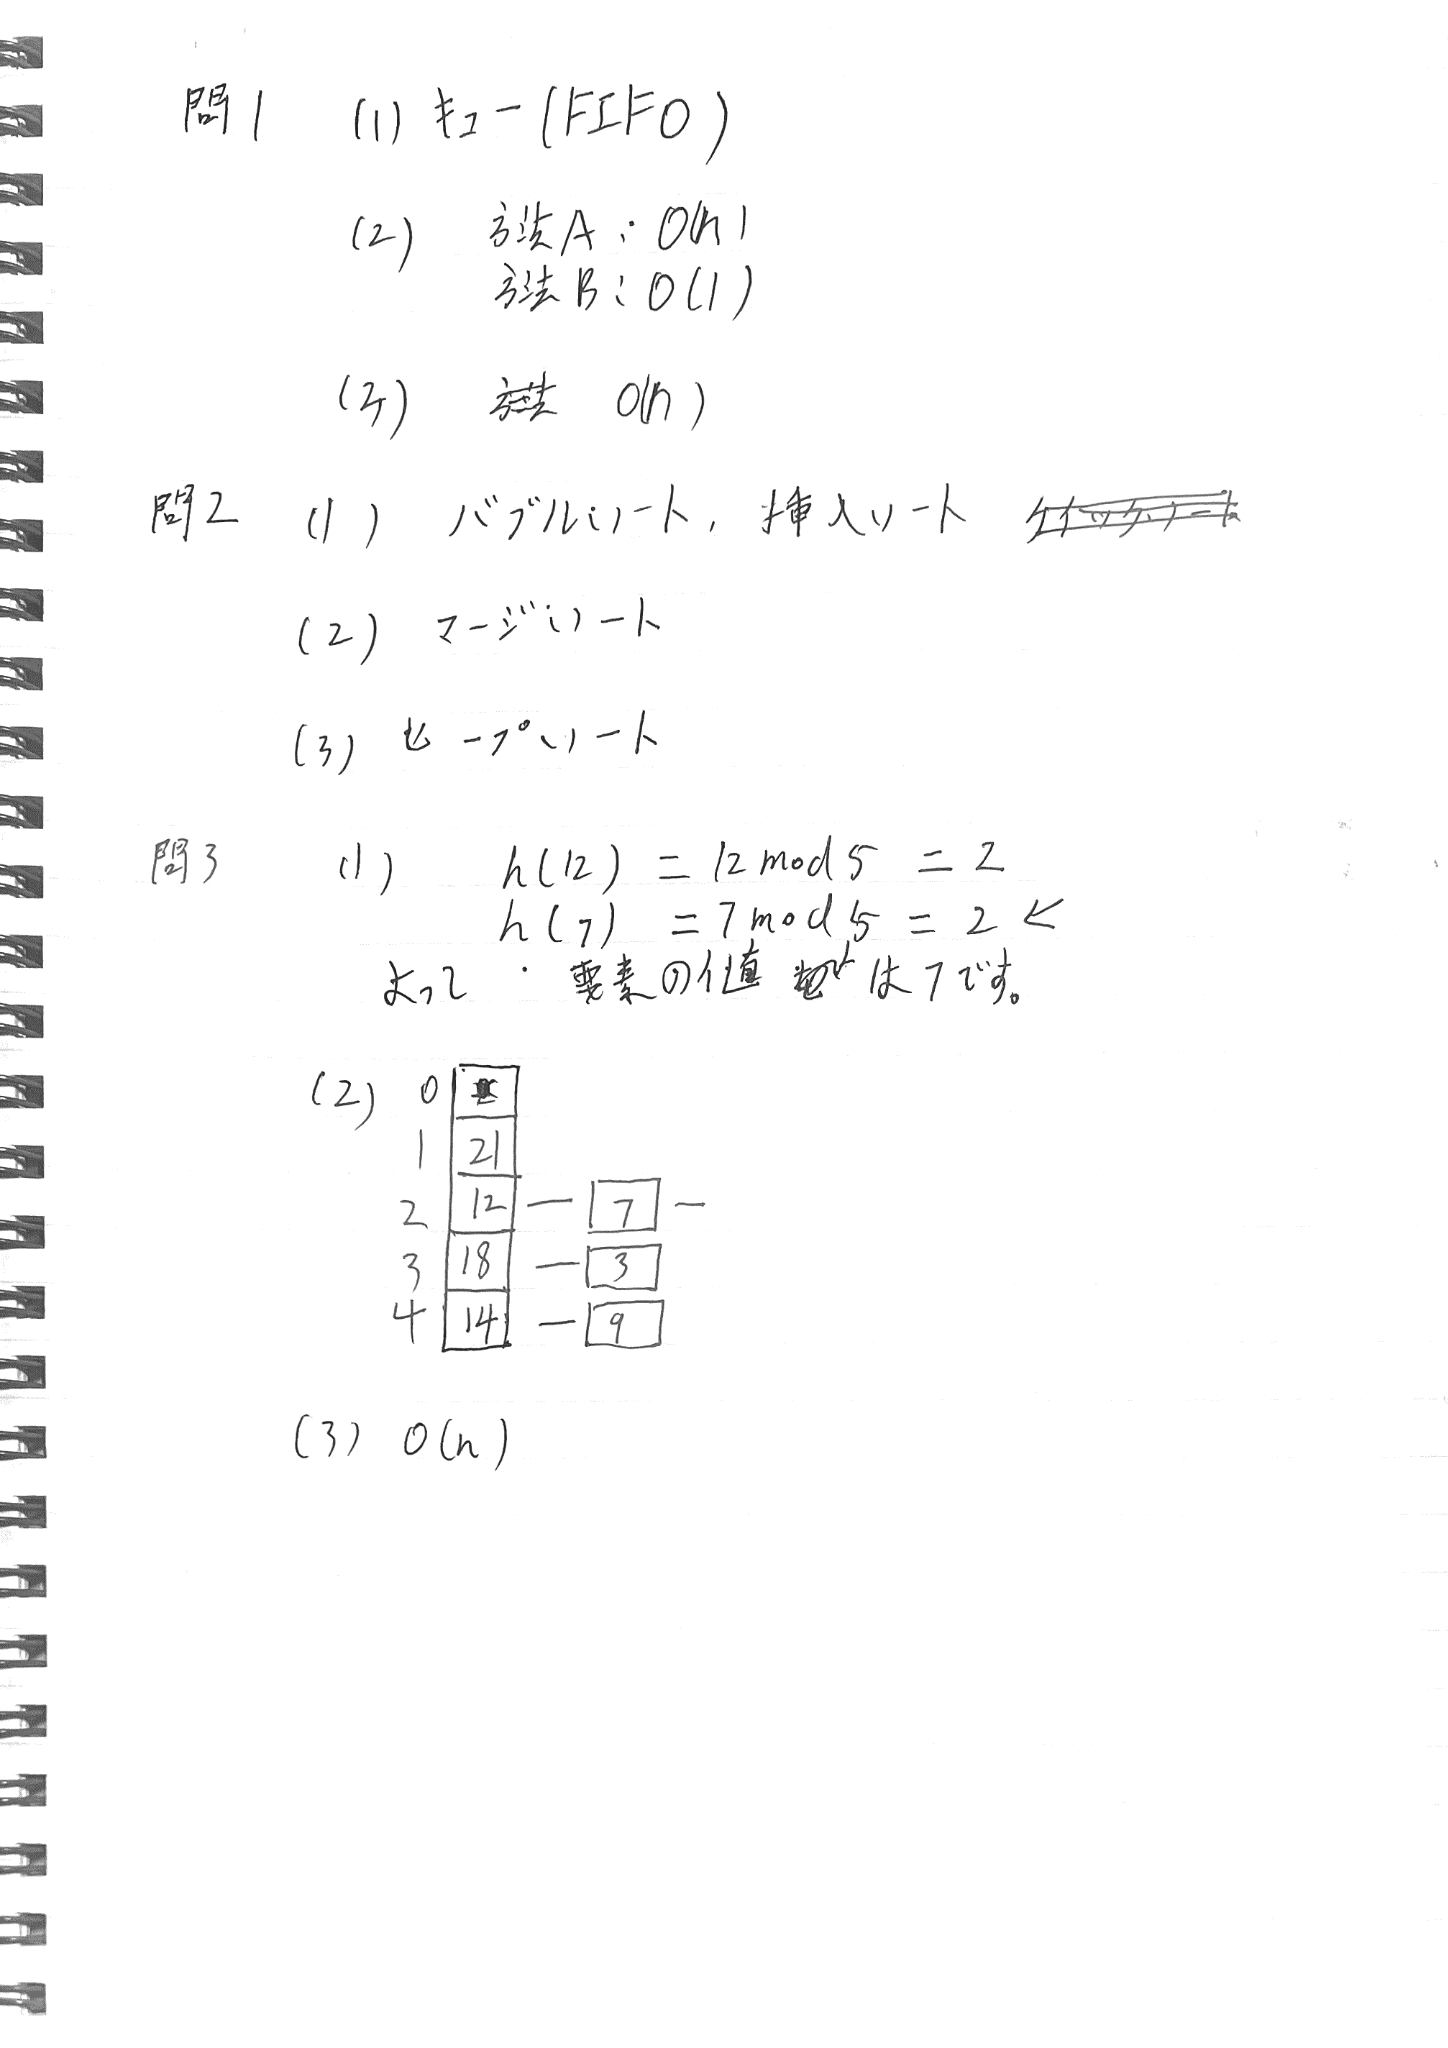 問1 (1) キュー(FIFO)
(2) 方法A : O(n)
方法B : O(1)
(3) O(n)
問2 (1) バブルソート, 挿入ソート
(2) マージソート
(3) ヒープソート
問3 (1) h(12) = 12 mod 5 = 2
h(7) = 7 mod 5 = 2 ←
よって 要素の値 は7です。
(2) 0
1 21
2 12 — 7 —
3 18 — 3
4 14 — 9
(3) O(n)